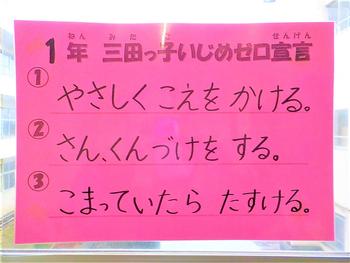 ねん みた こ せんげん
1年 三田っ子いじめゼロ宣言
① やさしく こえを かける。
② さん、くんづけを する。
③ こまっていたら たすける。